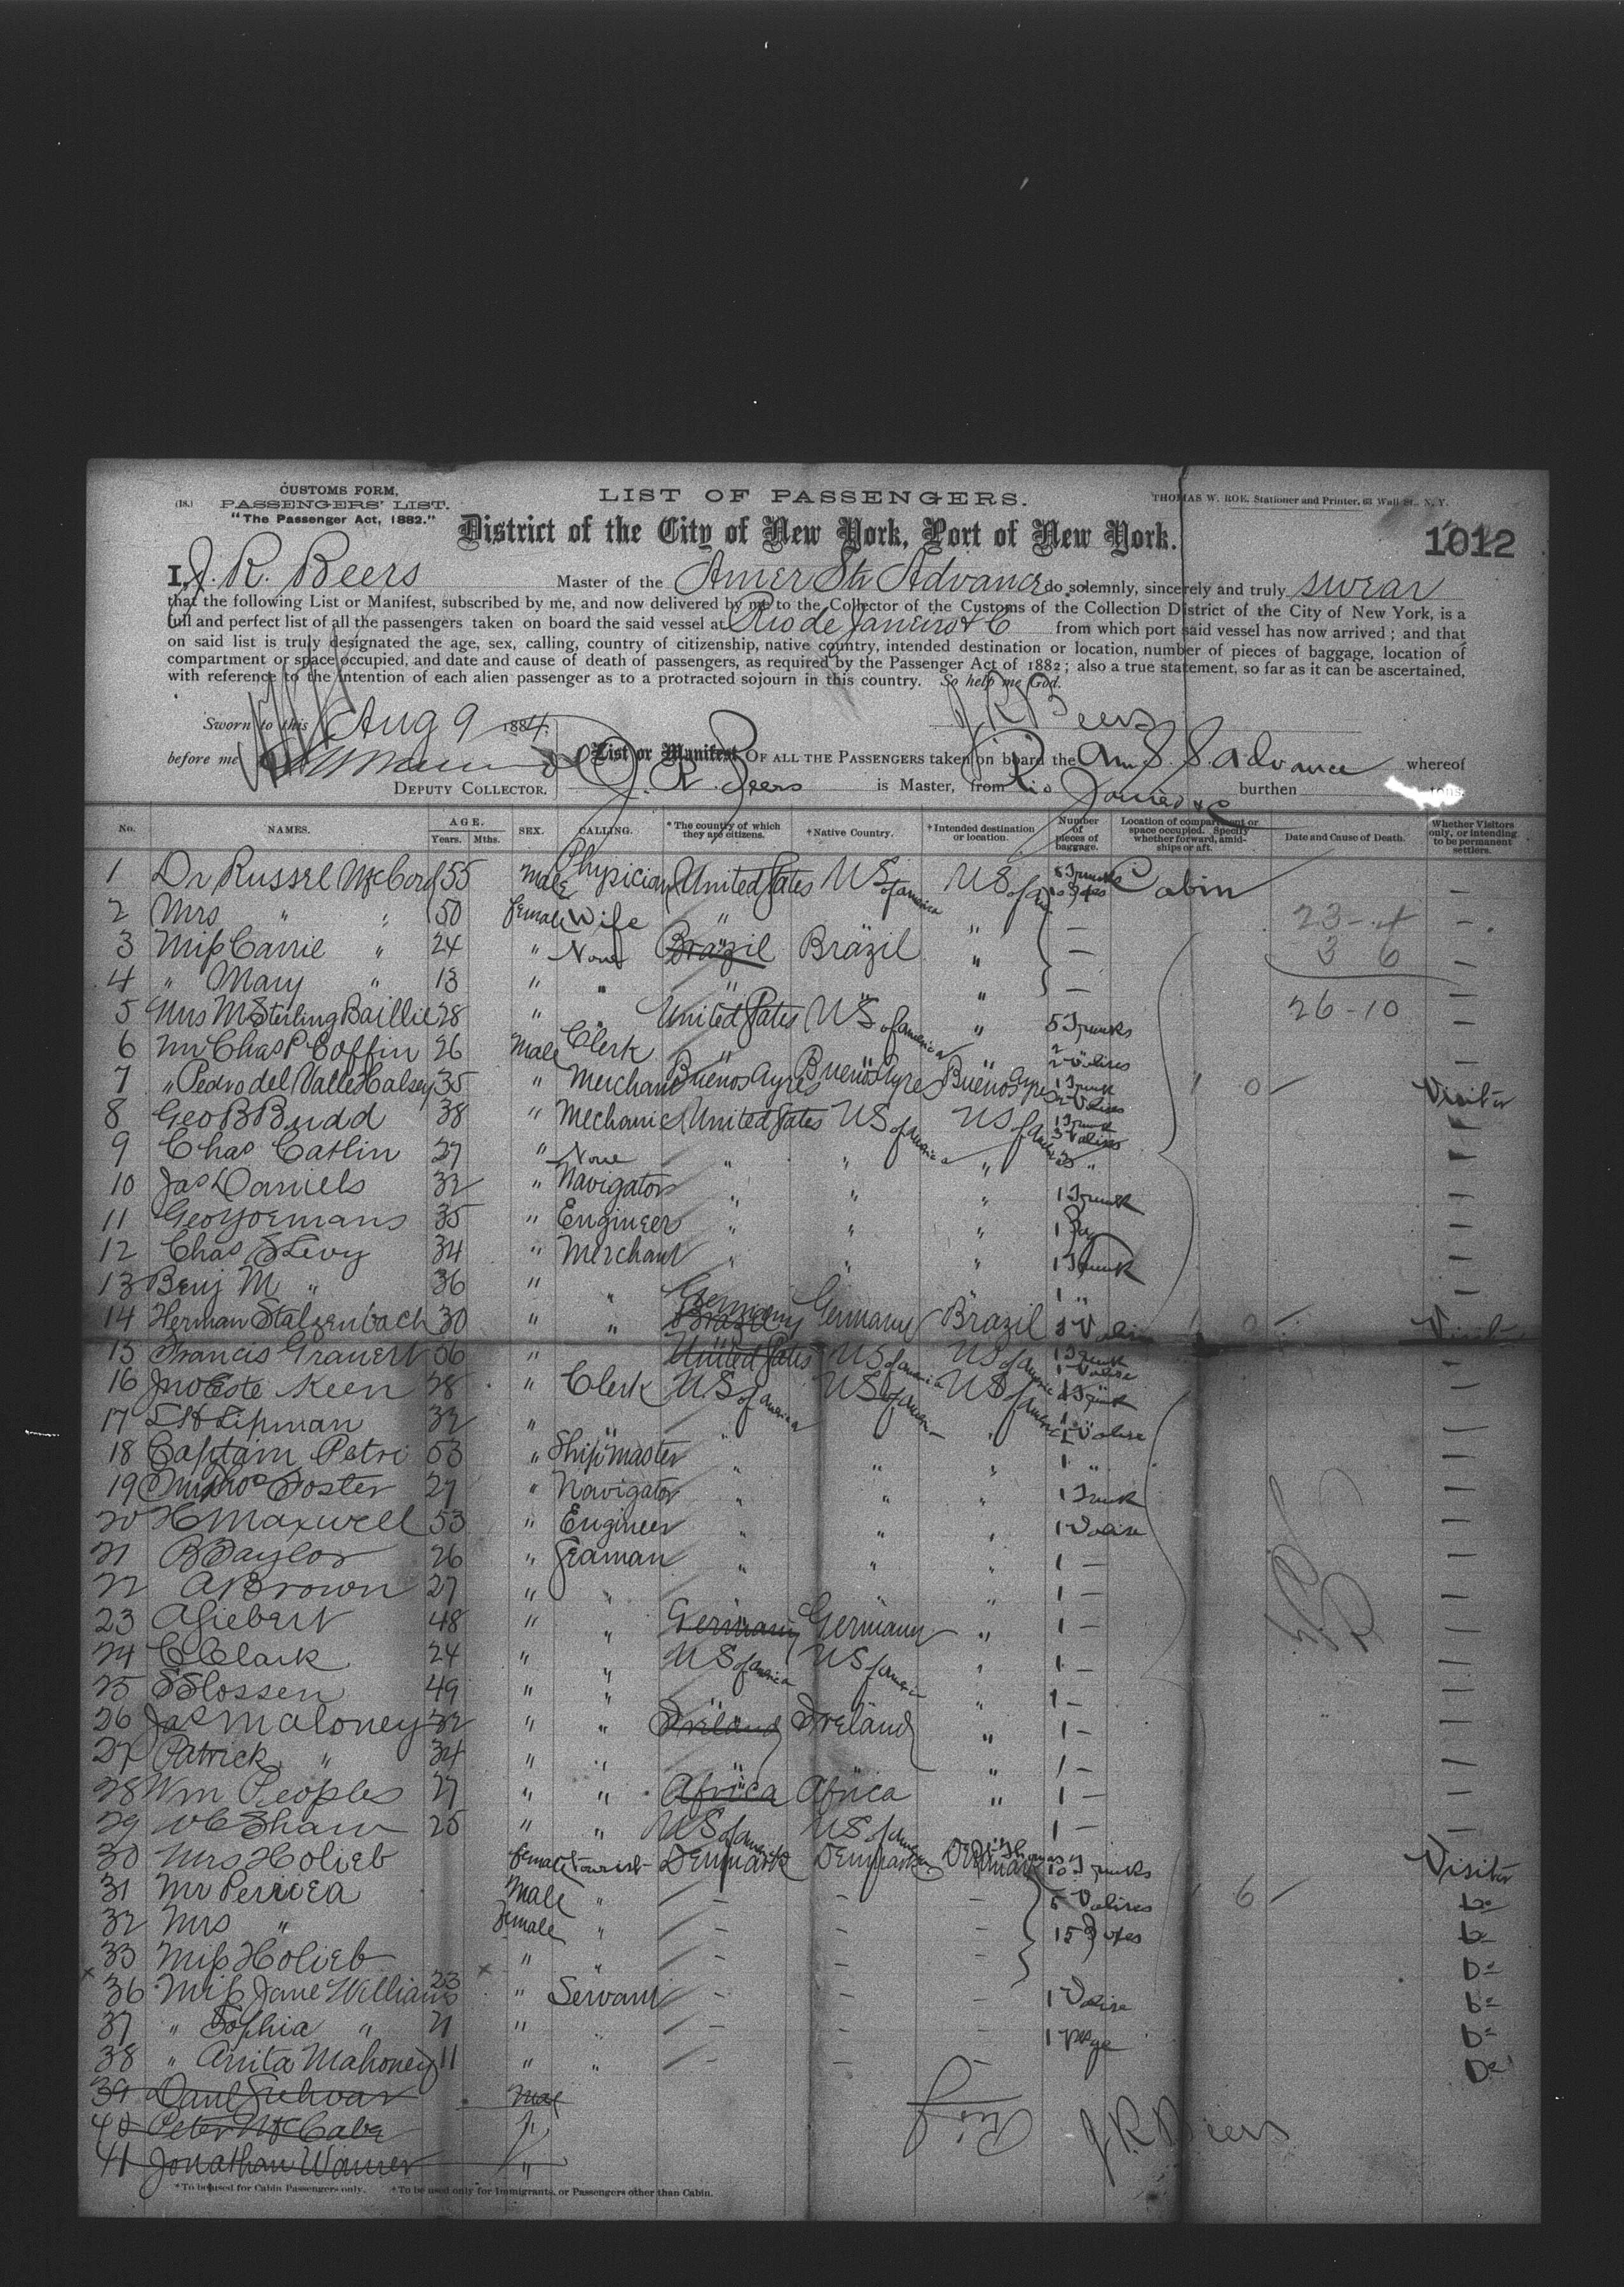 CUSTOMS FORM,
(18.) PASSENGERS' LIST.
"The Passenger Act, 1882."
LIST OF PASSENGERS.
THOMAS W. ROE, Stationer and Printer, 63 Wall St., N. Y.
District of the City of New York, Port of New York.
1012
I, J. R. Beers Master of the Amer Str Advance do solemnly, sincerely and truly swear
that the following List or Manifest, subscribed by me, and now delivered by me to the Collector of the Customs of the Collection District of the City of New York, is a
full and perfect list of all the passengers taken on board the said vessel at Rio de Janeiro & C from which port said vessel has now arrived; and that
on said list is truly designated the age, sex, calling, country of citizenship, native country, intended destination or location, number of pieces of baggage, location of
compartment or space occupied, and date and cause of death of passengers, as required by the Passenger Act of 1882; also a true statement, so far as it can be ascertained,
with reference to the intention of each alien passenger as to a protracted sojourn in this country. So help me God.
Sworn to this Aug 9 1884. J R Beers
before me
DEPUTY COLLECTOR.
List or Manifest OF ALL THE PASSENGERS taken on board the Am S. S. Advance whereof
J. R. Beers is Master, from Rio Janeiro & C burthen tons.
No. NAMES. AGE. Years. Mths. SEX. CALLING. *The country of which they are citizens. †Native Country. †Intended destination or location. Number of pieces of baggage. Location of compartment or space occupied. Specify whether forward, amidships or aft. Date and Cause of Death. Whether Visitors only, or intending to be permanent settlers.
1 Dr Russel McCord 55 Male Physician United States US of America US of Am 5 Trunks Cabin —
2 Mrs " " 50 female Wife " " — 23-4 —
3 Miss Carrie " 24 " None Brazil Brazil " — 3 6 —
4 " Mary " 13 " " " " " — —
5 Mrs M Sterling Baillie 28 " " United States US of America " 5 Trunks 26-10 —
6 Mr Chas P Coffin 26 Male Clerk " " " 2 Valises —
7 " Pedro del Valle Halsey 35 " Merchant Buenos Ayres Buenos Ayres Buenos Ayres 1 Trunk 2 Valises 1 0 — Visitor
8 Geo B Budd 38 " Mechanic United States US of America US of America 1 Trunk 3 Valises —
9 Chas Catlin 27 " None " " " 3 " —
10 Jas Daniels 32 " Navigator " " " 1 Trunk —
11 Geo Yoemans 35 " Engineer " " " 1 —
12 Chas S Levy 34 " Merchant " " " 1 Trunk —
13 Benj M " 36 " " 1 " —
14 Herman Stalzenbach 30 " " Germany Brazil Germany Brazil 3 Valise 1 0 — Visitor
15 Francis Grauert 36 " United States US of America US of America 1 Trunk 1 Valise —
16 Jno Este Keen 28 " Clerk US of America US of America US of America 1 Trunk —
17 L H Lipman 32 " " " " " 1 Valise —
18 Captain Petri 53 " Ship master " " " 1 " —
19 Foster 27 " Navigator " " " 1 Trunk —
20 H Maxwell 53 " Engineer " " " 1 Valise —
21 B Taylor 26 " Seaman " " " 1 — —
22 A Brown 27 " " " 1 — —
23 A Giebert 48 " " Germany Germany " 1 — —
24 C Clark 24 " " US of America US of America " 1 — —
25 S Slossen 49 " " " " " 1 — —
26 Jas Maloney 32 " " Ireland Ireland " 1 — —
27 Patrick " 34 " " " " " 1 — —
28 Wm Peoples 27 " " Africa Africa " 1 — —
29 W C Shaw 25 " " US of America US of America " 1 — —
30 Mrs Holieb female tourist Denmark Denmark Denmark St Thomas 10 Trunks Visitor
31 Mr Pericea Male " — — — 5 Valises 6 — Do
32 Mrs " female " — — — 15 Do
33 Miss Holieb " " — — — Do
36 Miss Jane Williams 23 " Servant — — — 1 Valise Do
37 " Sophia " 21 " " — — — 1 pkge Do
38 " Anita Mahoney 11 " " — — — Do
39 Male
40 Peter McCabe "
41 Jonathan Warner "
J. R. Beers
*To be used for Cabin Passengers only. †To be used only for Immigrants, or Passengers other than Cabin.